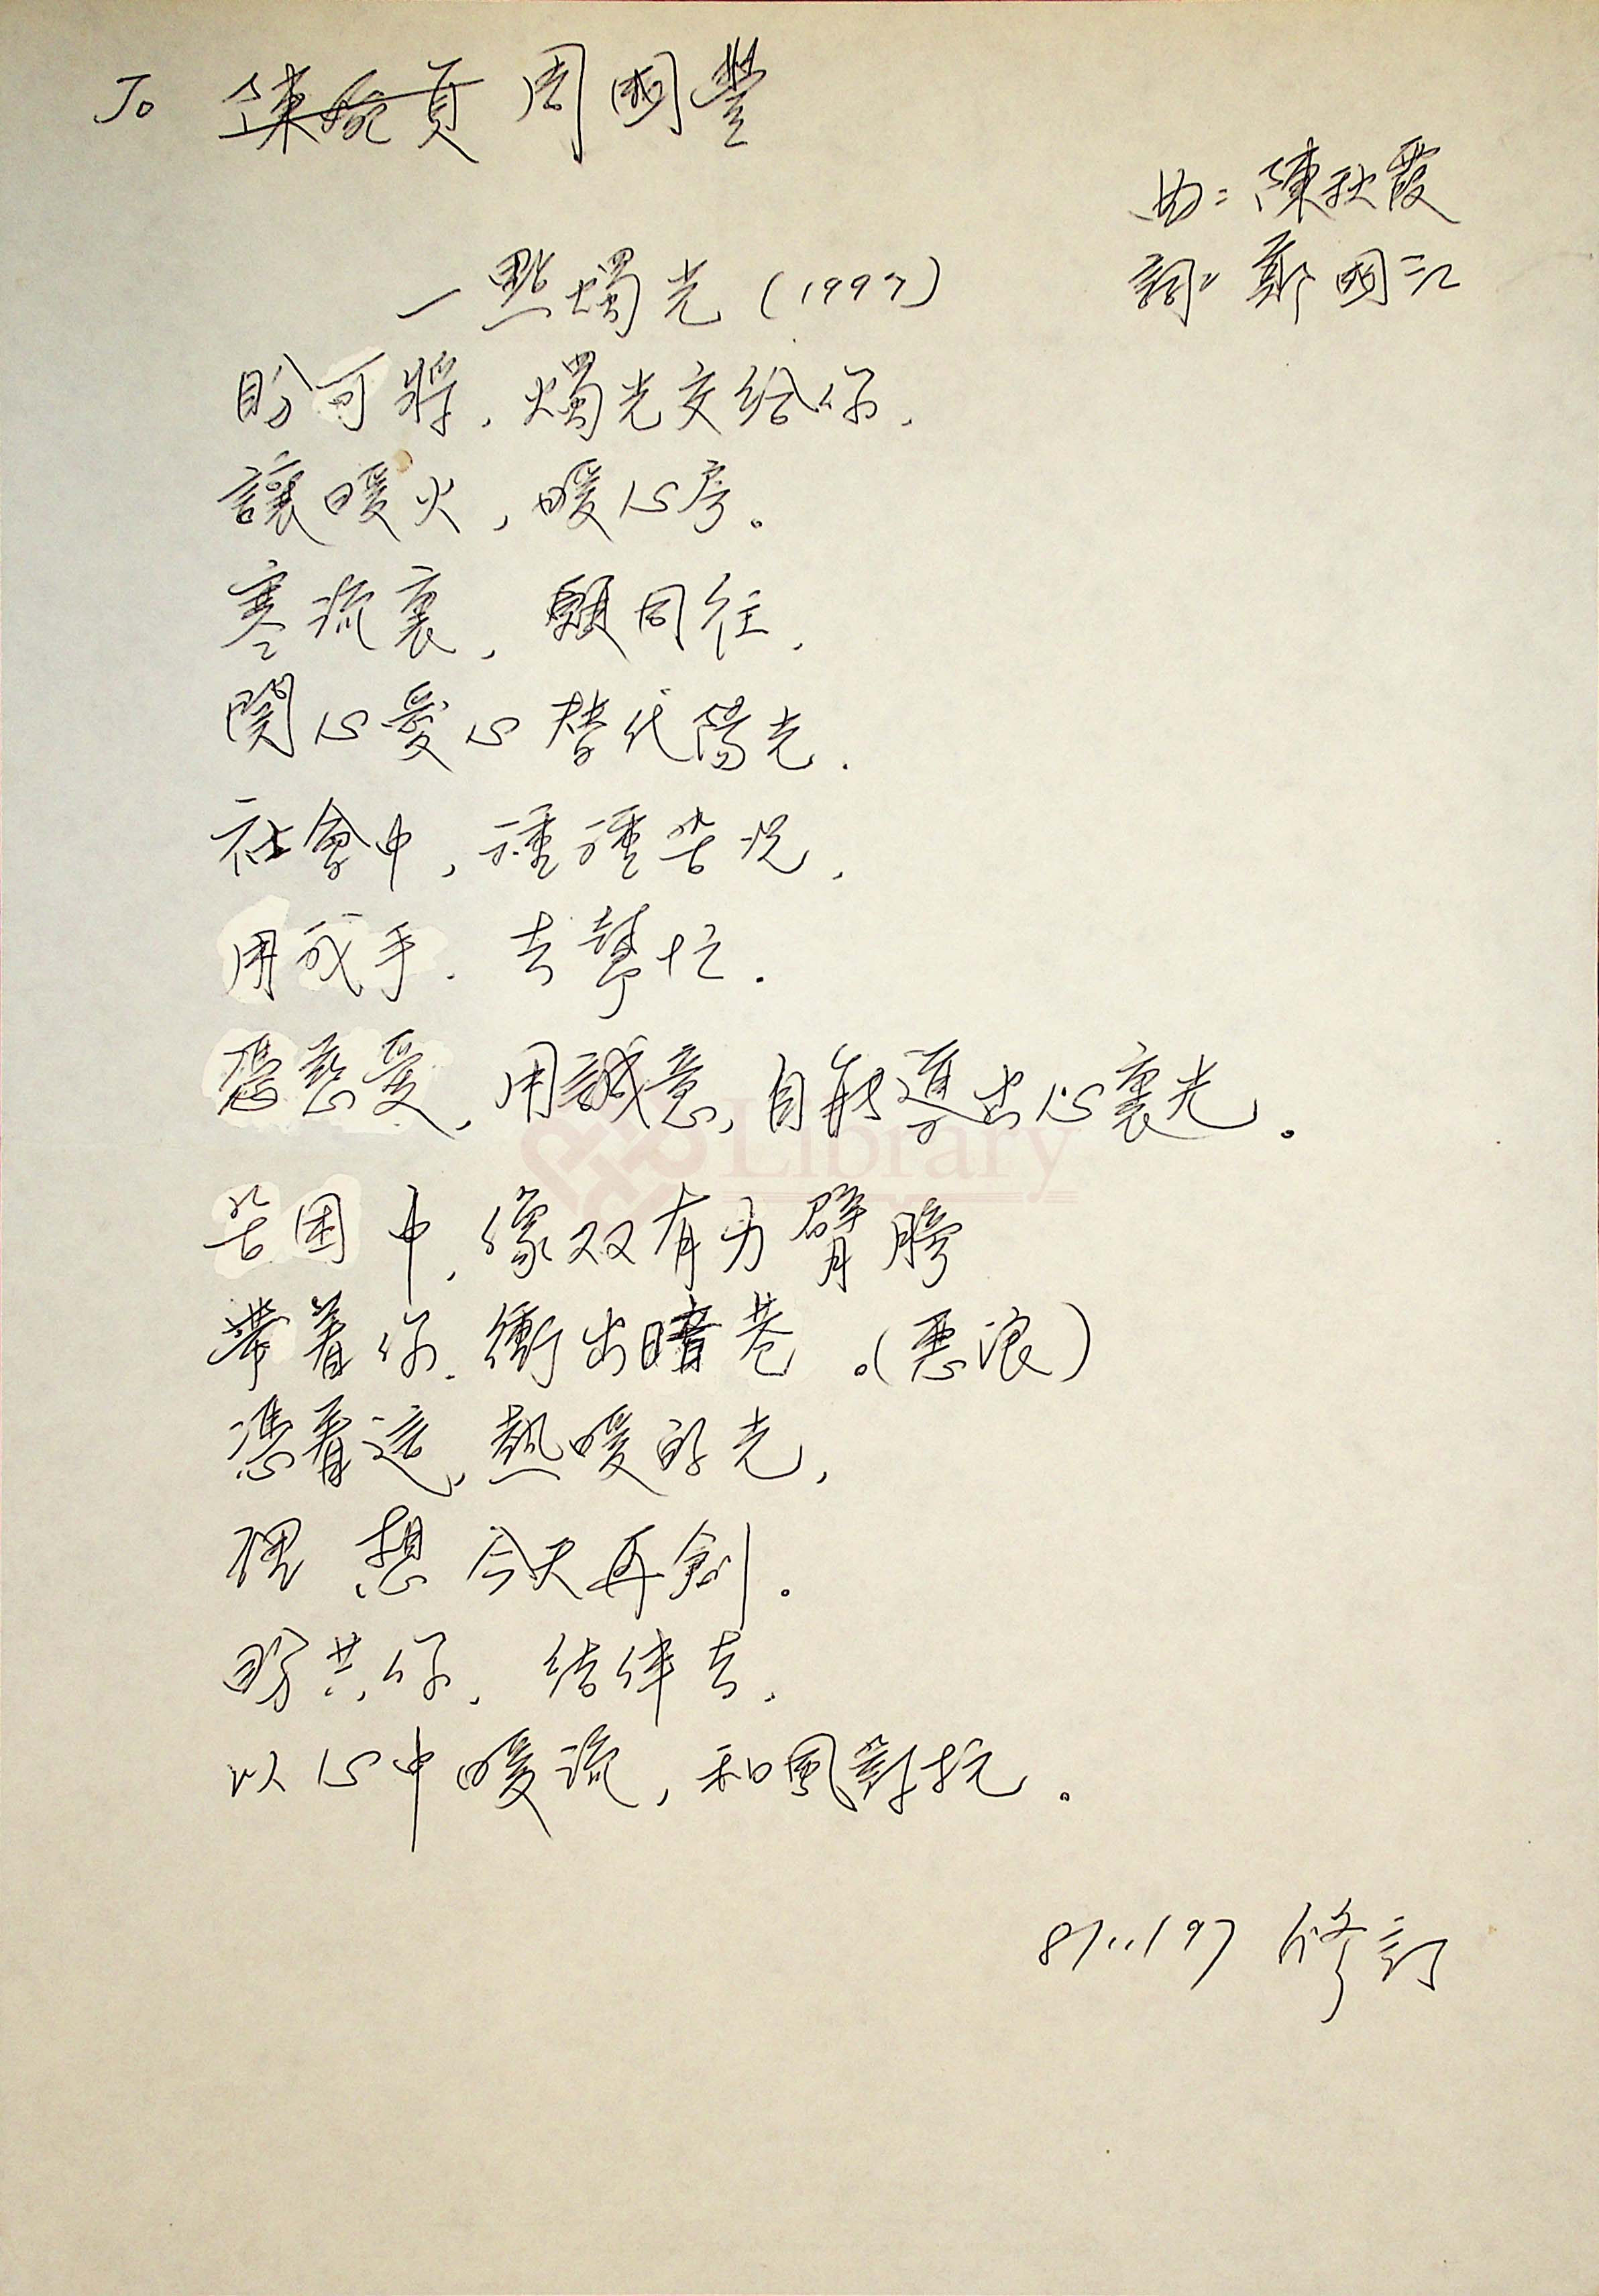 To 陳婉貞 周國豐
曲：陳秋霞
詞：鄭國江
一點燭光（1997）
盼可將，燭光交給你，
讓暖火，暖心房。
寒流裏，願同往，
關心愛心替代陽光．
社會中，種種苦況，
用我手．去幫忙．
憑慈愛，用誠意，自能導出心裏光。
Library
苦困中，像双有力臂膀
帶着你．衝出暗巷。（惡浪）
憑着這，熱暖的光，
理想今天再創．
盼共你，結伴去，
以心中暖流，和風對抗。
8/11/97 修訂